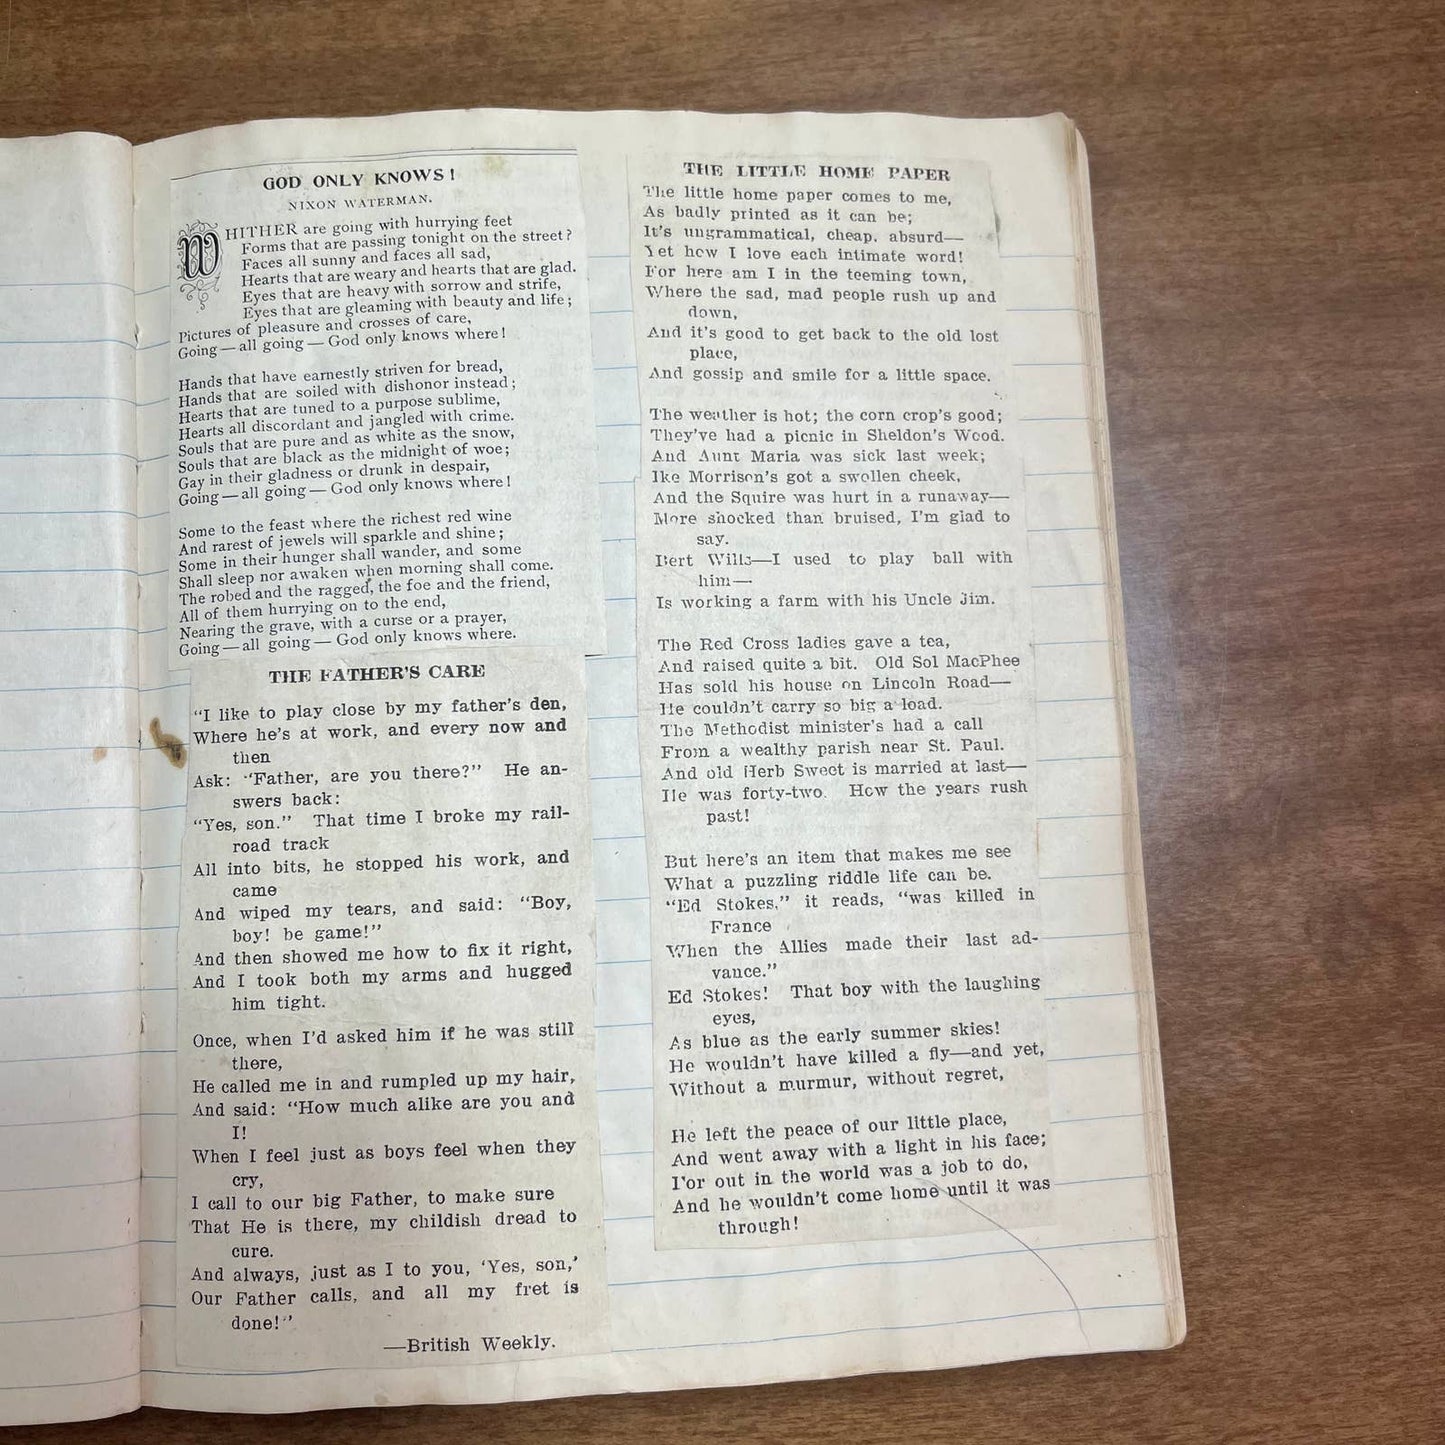 GOD ONLY KNOWS!
NIXON WATERMAN.
WHITHER are going with hurrying feet
Forms that are passing tonight on the street?
Faces all sunny and faces all sad,
Hearts that are weary and hearts that are glad.
Eyes that are heavy with sorrow and strife,
Eyes that are gleaming with beauty and life;
Pictures of pleasure and crosses of care,
Going—all going—God only knows where!
Hands that have earnestly striven for bread,
Hands that are soiled with dishonor instead;
Hearts that are tuned to a purpose sublime,
Hearts all discordant and jangled with crime.
Souls that are pure and as white as the snow,
Souls that are black as the midnight of woe;
Gay in their gladness or drunk in despair,
Going—all going—God only knows where!
Some to the feast where the richest red wine
And rarest of jewels will sparkle and shine;
Some in their hunger shall wander, and some
Shall sleep nor awaken when morning shall come.
The robed and the ragged, the foe and the friend,
All of them hurrying on to the end,
Nearing the grave, with a curse or a prayer,
Going—all going—God only knows where.
THE FATHER'S CARE
"I like to play close by my father's den,
Where he's at work, and every now and
then
Ask: "Father, are you there?" He an-
swers back:
"Yes, son." That time I broke my rail-
road track
All into bits, he stopped his work, and
came
And wiped my tears, and said: "Boy,
boy! be game!"
And then showed me how to fix it right,
And I took both my arms and hugged
him tight.
Once, when I'd asked him if he was still
there,
He called me in and rumpled up my hair,
And said: "How much alike are you and
I!
When I feel just as boys feel when they
cry,
I call to our big Father, to make sure
That He is there, my childish dread to
cure.
And always, just as I to you, 'Yes, son,'
Our Father calls, and all my fret is
done!"
—British Weekly.
THE LITTLE HOME PAPER
The little home paper comes to me,
As badly printed as it can be;
It's ungrammatical, cheap, absurd—
Yet how I love each intimate word!
For here am I in the teeming town,
Where the sad, mad people rush up and
down,
And it's good to get back to the old lost
place,
And gossip and smile for a little space.
The weather is hot; the corn crop's good;
They've had a picnic in Sheldon's Wood.
And Aunt Maria was sick last week;
Ike Morrison's got a swollen cheek,
And the Squire was hurt in a runaway—
More shocked than bruised, I'm glad to
say.
Bert Wills—I used to play ball with
him—
Is working a farm with his Uncle Jim.
The Red Cross ladies gave a tea,
And raised quite a bit. Old Sol MacPhee
Has sold his house on Lincoln Road—
He couldn't carry so big a load.
The Methodist minister's had a call
From a wealthy parish near St. Paul.
And old Herb Sweet is married at last—
He was forty-two. How the years rush
past!
But here's an item that makes me see
What a puzzling riddle life can be.
"Ed Stokes," it reads, "was killed in
France
When the Allies made their last ad-
vance."
Ed Stokes! That boy with the laughing
eyes,
As blue as the early summer skies!
He wouldn't have killed a fly—and yet,
Without a murmur, without regret,
He left the peace of our little place,
And went away with a light in his face;
For out in the world was a job to do,
And he wouldn't come home until it was
through!